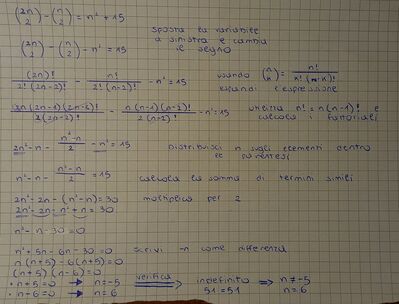 (2n 2) - (n 2) = n² + 15
sposta la variabile
a sinistra e cambia
il segno
(2n 2) - (n 2) - n² = 15
(2n)! / 2!(2n-2)! - n! / 2!(n-2)! - n² = 15 usando (n k) = n! / k!(n-k)!
espandi l'espressione
2n(2n-1)(2n-2)! / 2(2n-2)! - n(n-1)(n-2)! / 2(n-2)! - n² = 15 utilizza n! = n(n-1)! e
calcola i fattoriali
2n² - n - n²-n / 2 - n² = 15 Distribuisci n sugli elementi dentro
le parentesi
n² - n - n²-n / 2 = 15 calcola la somma di termini simili
2n² - 2n - (n² - n) = 30 moltiplica per 2
2n² - 2n - n² + n = 30
n² - n - 30 = 0
n² + 5n - 6n - 30 = 0 scrivi -n come differenza
n(n+5) - 6(n+5) = 0
(n+5)(n-6) = 0
• n+5=0 → n=-5 verifica indefinito ⇒ n ≠ -5
• n-6=0 → n=6 51=51 n=6